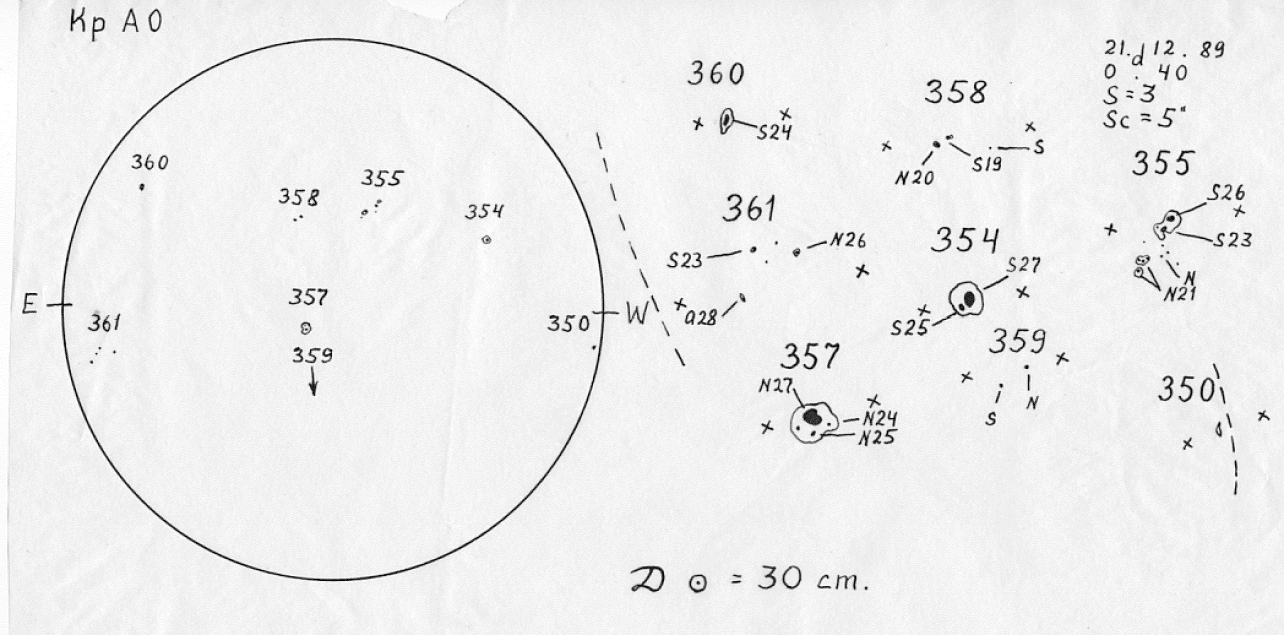 Кр АО
360
358
355
354
E
357
361
359
350
W
360
S24
358
N20
S19
S
21.d 12. 89
0 . 40
S = 3
Sc = 5"
355
S26
S23
N
N21
361
S23
N26
a28
354
S27
S25
357
N27
N24
N25
359
S
N
350
D ⊙ = 30 cm.